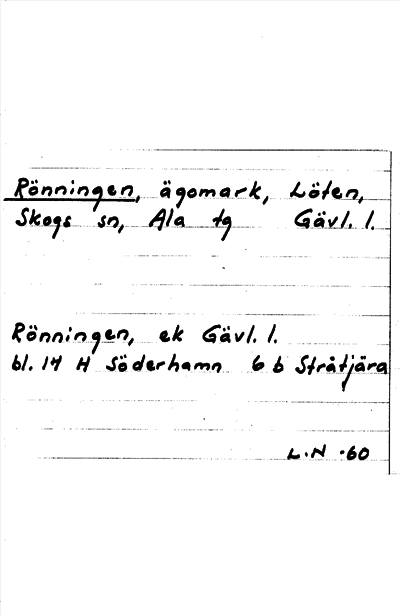 Rönningen, ägomark, Löten,
Skogs sn, Ala tg Gävl. l.
Rönningen, ek Gävl. l.
bl. 14 H Söderhamn 6 b Stråtjära
L.N -60